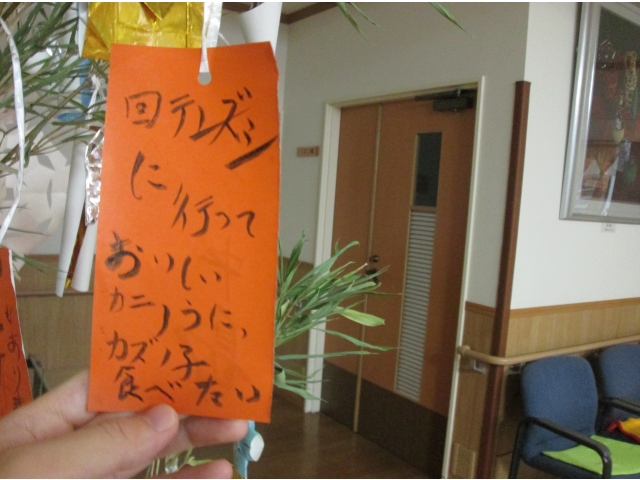 回テレズン
に行って
おいしい
カニ、うに、
カズノ子
食べたい